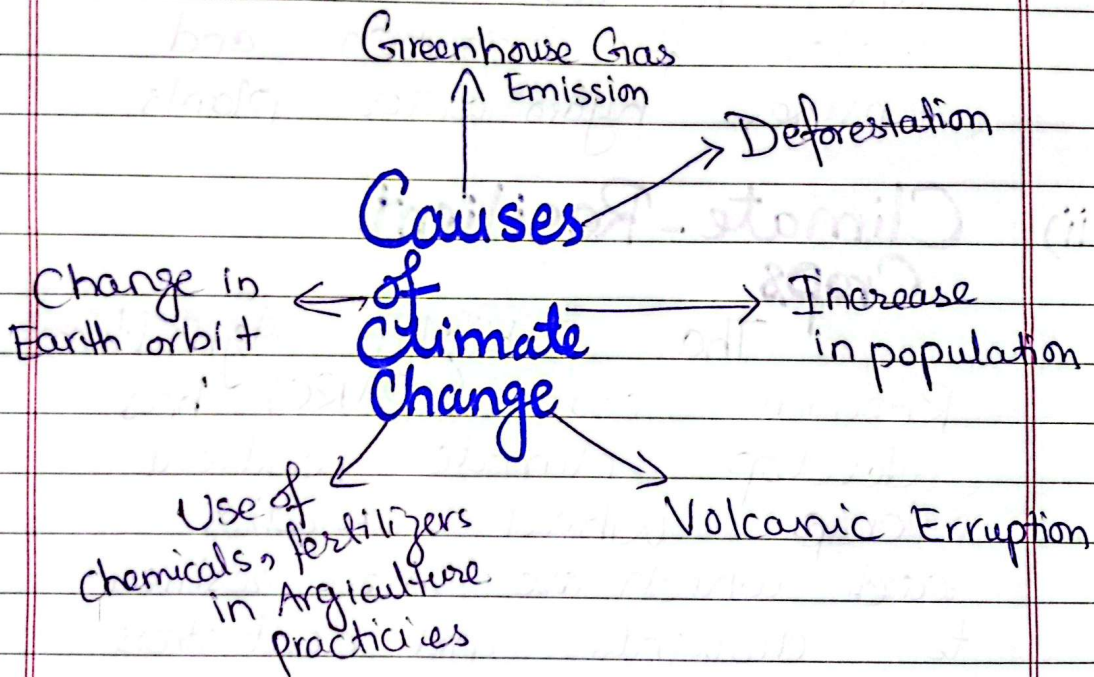 Greenhouse Gas
Emission
Deforestation
Causes
of
Climate
Change
Change in
Earth orbit
Increase
in population
Use of
chemicals, fertilizers
in Argiculture
practicies
Volcanic Erruption
ii) Climate-Resilient
Crops